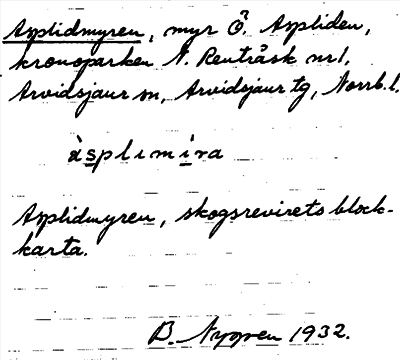 Asplidmyren, myr Ö. Aspliden,
kronoparken N. Renträsk nr 1,
Arvidsjaur sn, Arvidsjaur tg, Norrb. l.
àsplimìra
Asplidmyren, skogsrevirets block-
karta.
B. Nygren 1932.